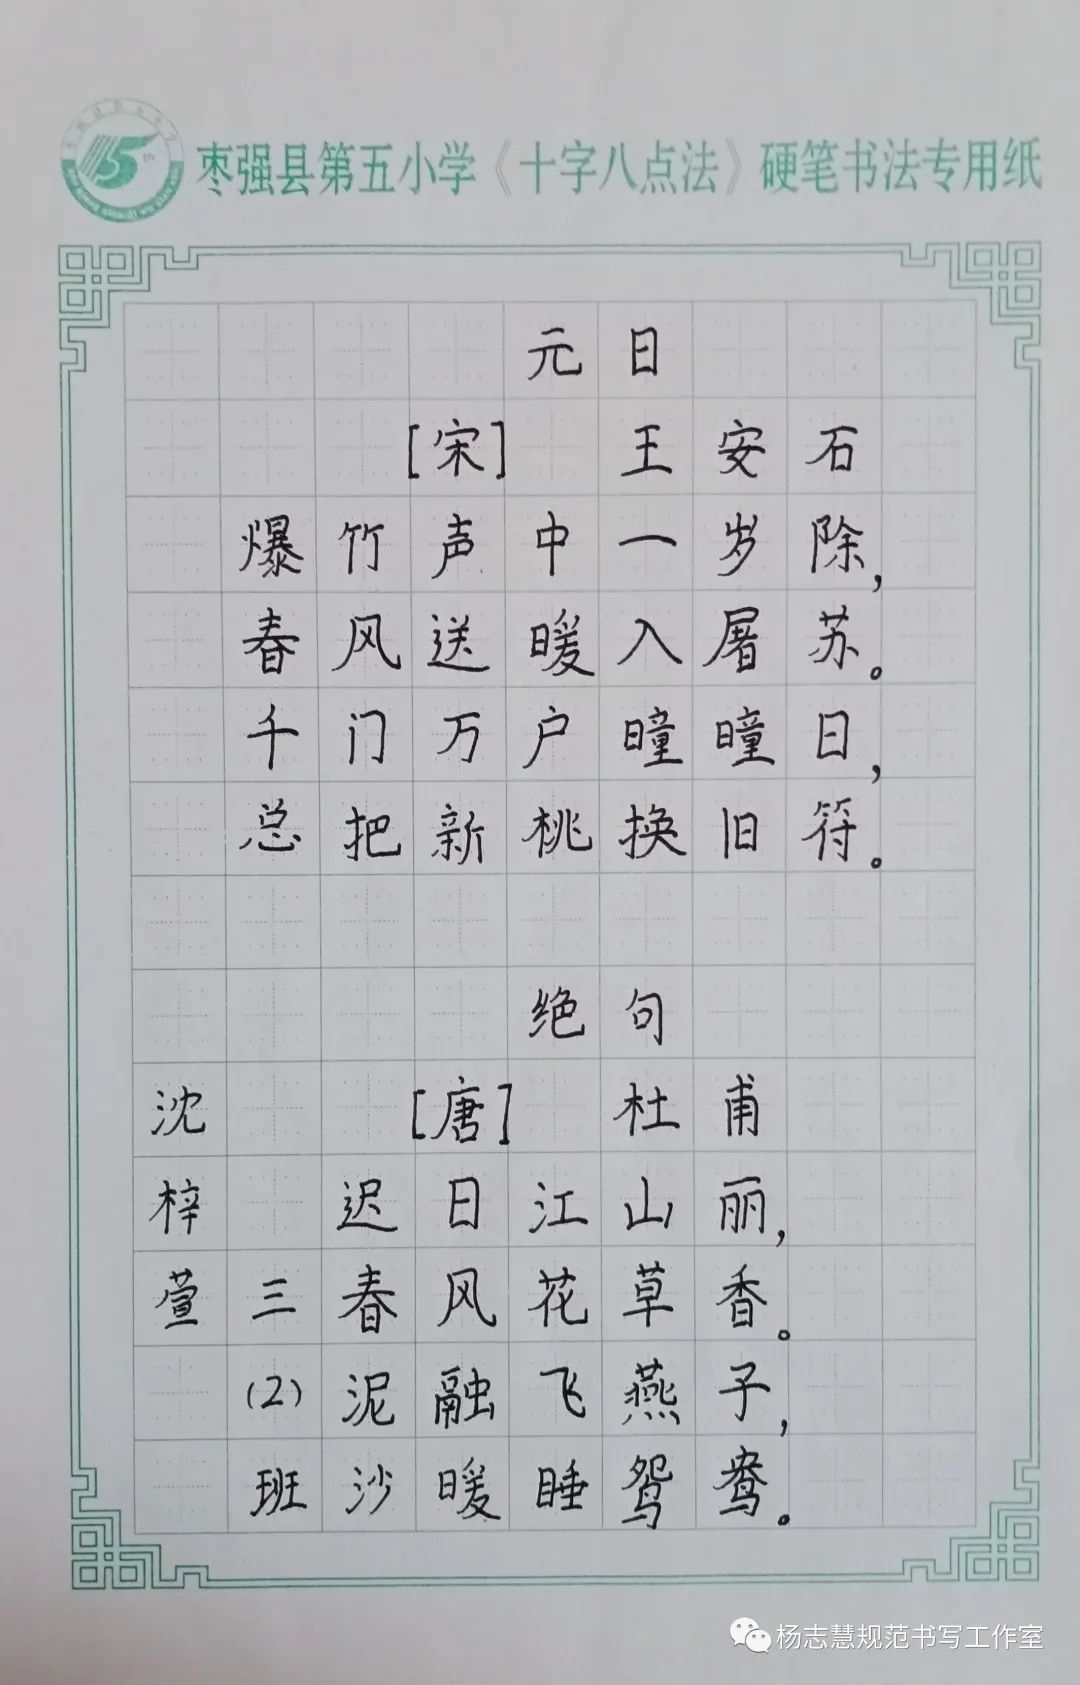 枣强县第五小学《十字八点法》硬笔书法专用纸
元日
[宋] 王安石
爆竹声中一岁除，
春风送暖入屠苏。
千门万户曈曈日，
总把新桃换旧符。
绝句
[唐] 杜甫
迟日江山丽，
春风花草香。
泥融飞燕子，
沙暖睡鸳鸯。
沈梓萱
三(2)班
杨志慧规范书写工作室